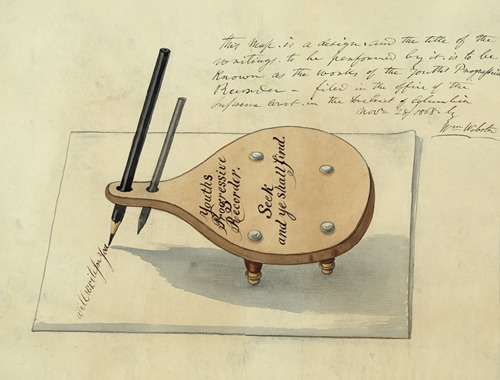 This Map. is a design. and the title of the
writings. to be performed by it. is to be
Known as the works of the Youths Progressive
Recorder – filed in the office of the
Supreme Court. in the District of Columbia
Novr 28/1868. by
Wm Webster
Youth's
Progressive
Recorder.
Seek
and ye shall find.